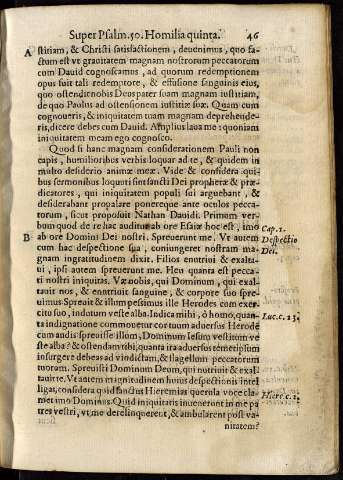 Super Psalm. 50. Homilia quinta. 46
A stitiam, & Christi satisfactionem, devenimus, quo fa-
ctum est vt gravitatem magnam nostrorum peccatorum
cum Dauid cognoscamus, ad quorum redemptionem
opus fuit tali redemptore, & effusione sanguinis eius,
quo ostendit nobis Deus pater suam magnam iustitiam,
de quo Paulus ad ostensionem iustitiæ suæ. Quam cum
cognoueris, & iniquitatem tuam magnam deprehende-
ris, dicere debes cum Dauid. Amplius laua me: quoniam
iniquitatem meam ego cognosco.
Quod si hanc magnam considerationem Pauli non
capis, humilioribus verbis loquar ad te, & quidem in
multo desiderio animæ meæ. Vide & considera qui-
bus sermonibus loquuti sint sancti Dei prophetæ & præ-
dicatores, qui iniquitatem populi sui arguebant, &
desiderabant propalare ponereque ante oculos pecca-
torum, sicut proposuit Nathan Dauidi. Primum ver-
bum quod de re hac auditur ab ore Esaiæ hoc est, imo
B ab ore Domini Dei nostri. Spreuerunt me. Vt autem
cum hac despectione sua, coniungeret nostram ma-
gnam ingratitudinem dixit. Filios enutriui & exalta-
ui, ipsi autem spreuerunt me. Heu quanta est pecca-
ti nostri iniquitas. Væ nobis, qui Dominum, qui exal-
tauit nos, & enutriuit sanguine, & corpore suo spre-
uimus. Spreuit & illum pessimus ille Herodes cum exer-
citu suo, indutum veste alba. Indica mihi, ò homo, quan-
ta indignatione commouetur cor tuum aduersus Herodē
cum audis spreuisse illum, Dominum Iesum vestitum ve
ste alba? & ostendam tibi, quanta ira aduersus temetipsum
insurgere debeas ad vindictam, & flagellum peccatorum
tuorum. Spreuisti Dominum Deum, qui nutriuit & exal-
tauit te. Vt autem magnitudinem huius despectionis intel
ligas, considera quid sanctus Hieremias querula voce cla-
met imo Dominus. Quid iniquitatis inuenerunt in me pa
tres vestri, vt me derelinquerent, & ambularent post va-
nitatem?
Cap. 1.
Despectio
Dei.
Luc. c. 23.
Hier. c. 2.